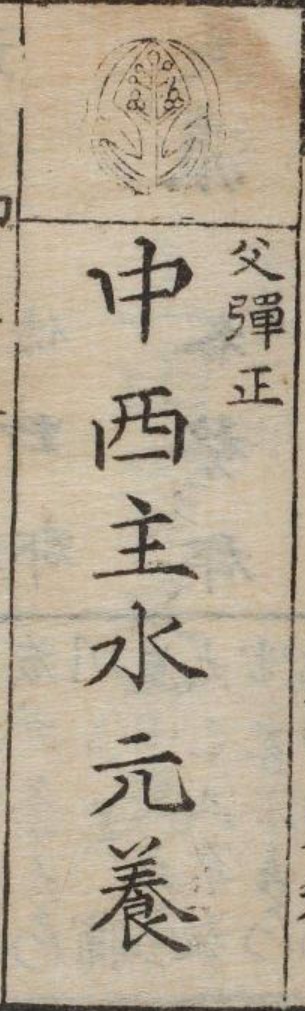 父彈正
中西主水元養